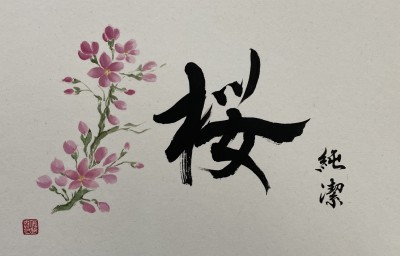 桜
純潔